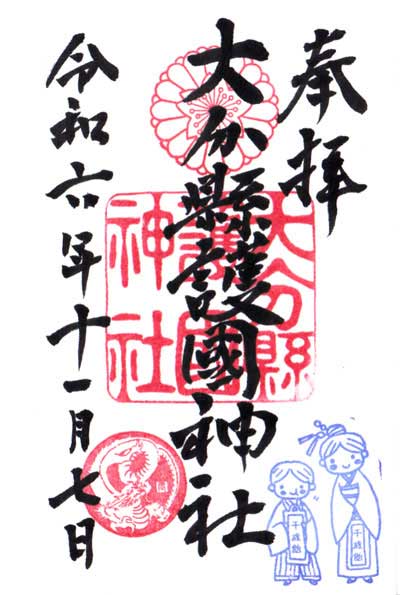 奉拝
大分縣護國神社
令和六年十一月七日
大分縣
護國
神社
千歳飴
千歳飴